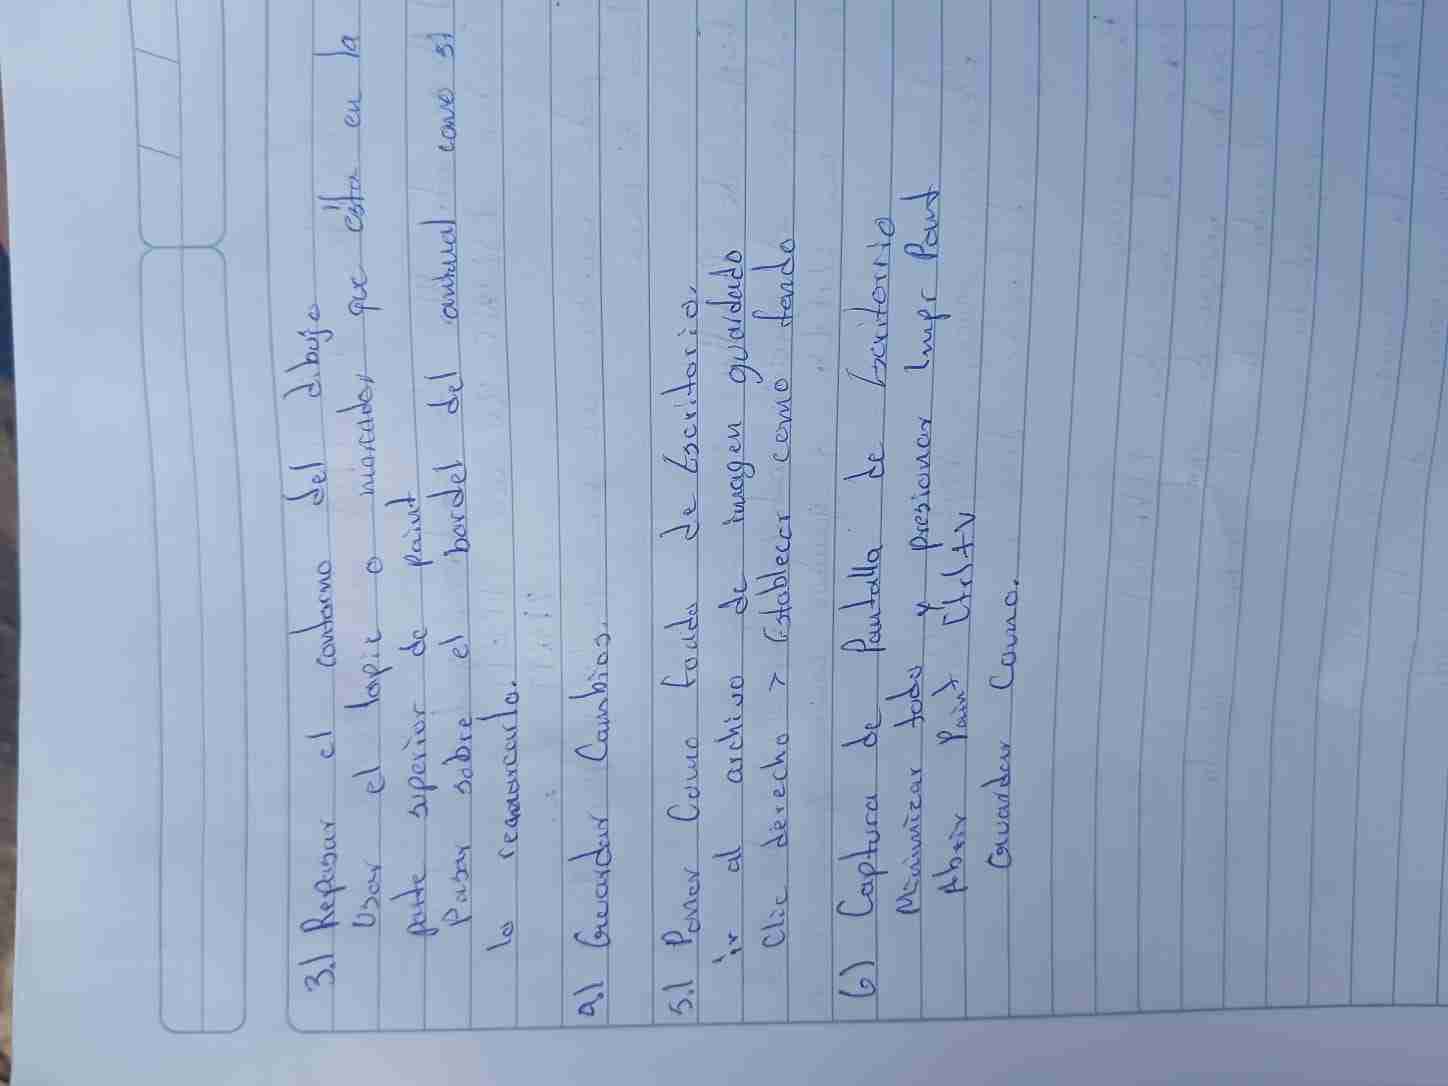 3.) Repasar el contorno del dibujo
Usar el lapiz o marcador que ésta en la
parte superior de paint
Pasar sobre el bordel del animal como si
lo reamarcarlo.
4.) Guardar Cambios.
5.) Poner Como fondo de Escritorio.
ir al archivo de imagen guardado
Clic derecho > Establecer como fondo
6) Captura de Pantalla de Escritorrio
Minimizar todo y presionar Impr Pant
Abrir Paint Ctrl+V
Guardar Como.